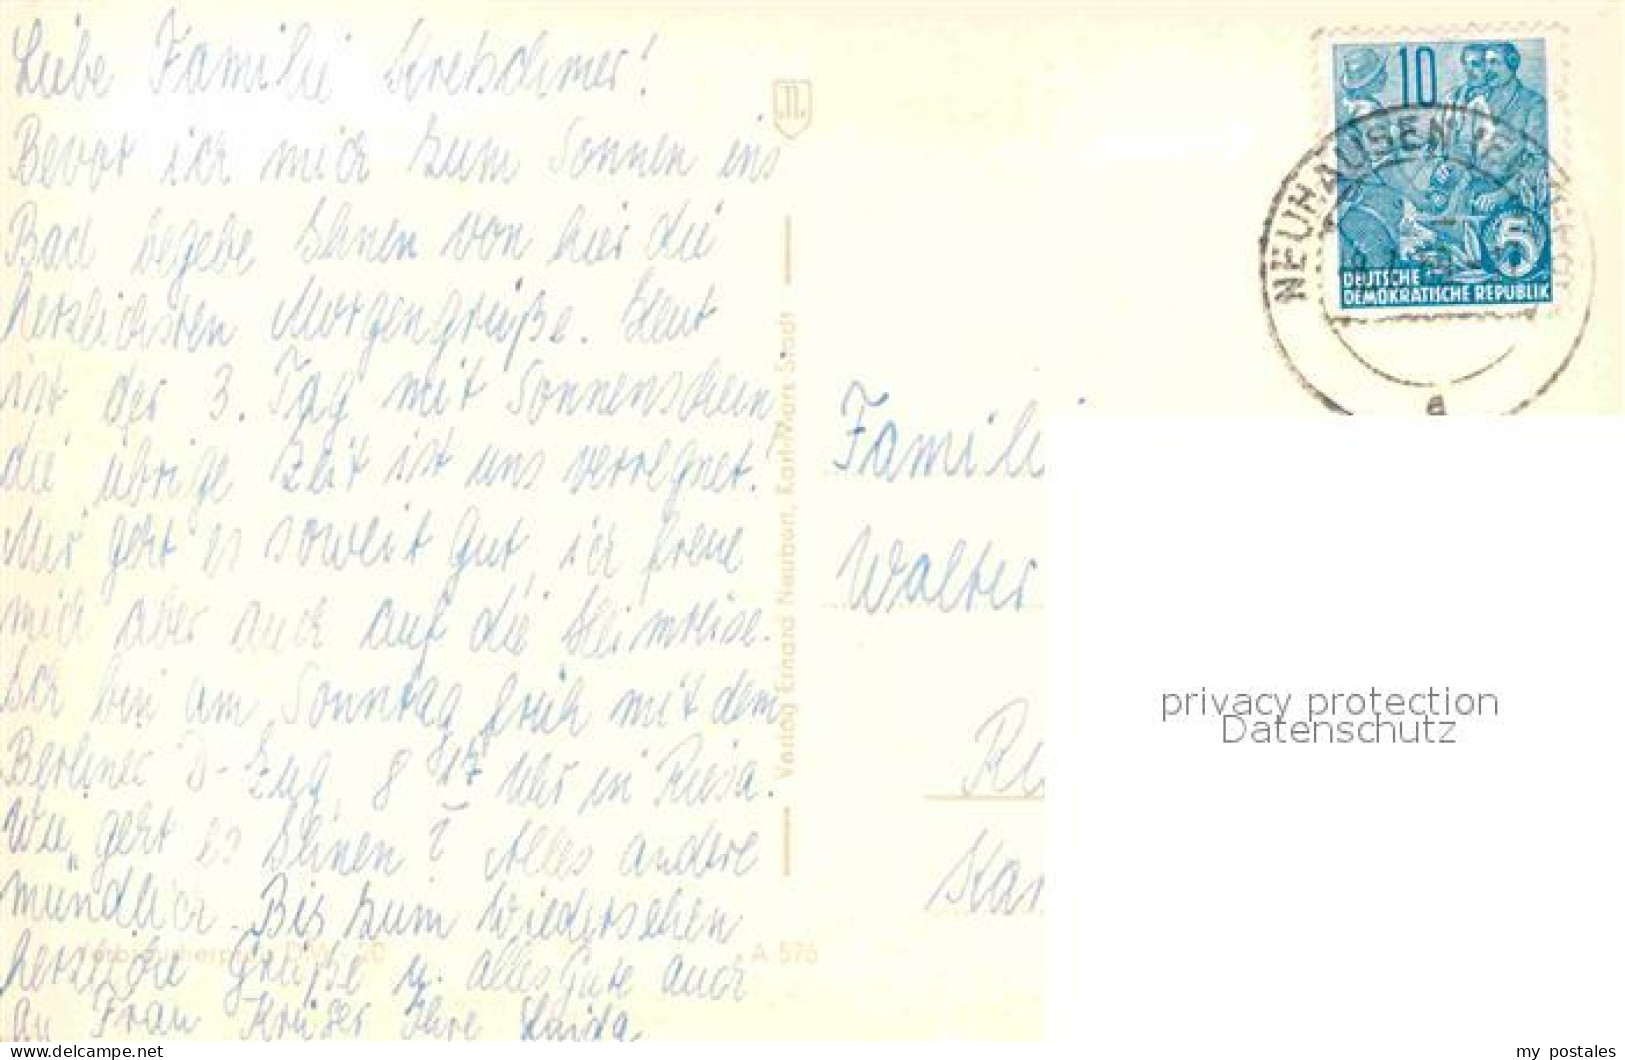 Liebe Familie Kretschmer!
Bevor ich mich zum Sonnen ins
Bad begebe Ihnen von hier die
herzlichsten Morgengrüße. Heut
ist der 3. Tag mit Sonnenschein
die übrige Zeit ist uns verregnet.
Mir geht es soweit gut, ich freue
mich aber auch auf die Heimreise.
Ich bin am Sonntag früh mit dem
Berliner D-Zug 8 17 Uhr in Riesa.
Wie geht es Ihnen? Alles andere
mündlich. Bis zum Wiedersehen
herzliche Grüße u. alles Gute auch
an Frau Krüger Ihre
A 576
Verlag Erhard Neubert, Karl-Marx-Stadt
10
5
DEUTSCHE
DEMOKRATISCHE REPUBLIK
NEUHAUSEN
a
Famili
Walter
privacy protection
Datenschutz
my postales
www.delcampe.net